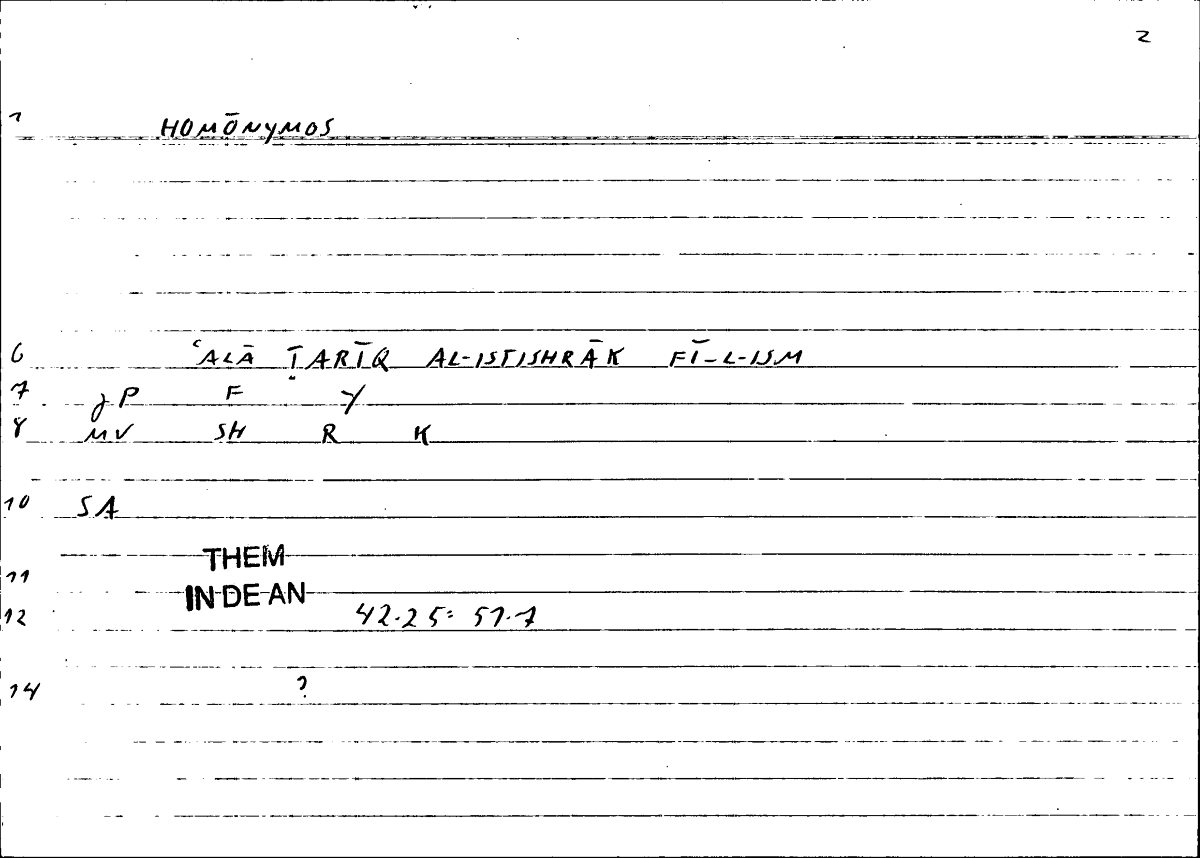 2
1 HOMŌNYMOS
6 ʿALĀ ṬARĪQ AL-ISTISHRĀK FĪ-L-ISM
7 P F Y
8 MV SH R K
10 SA
THEM
11 IN DE AN
12 42.25: 57.7
14 ?